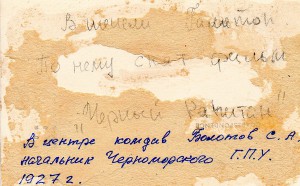 В шинели Болотов
По нему снят фильм
"Черный Капитан"
В центре комдив Болотов С. А.
начальник Черноморского Г.П.У.
1927 г.